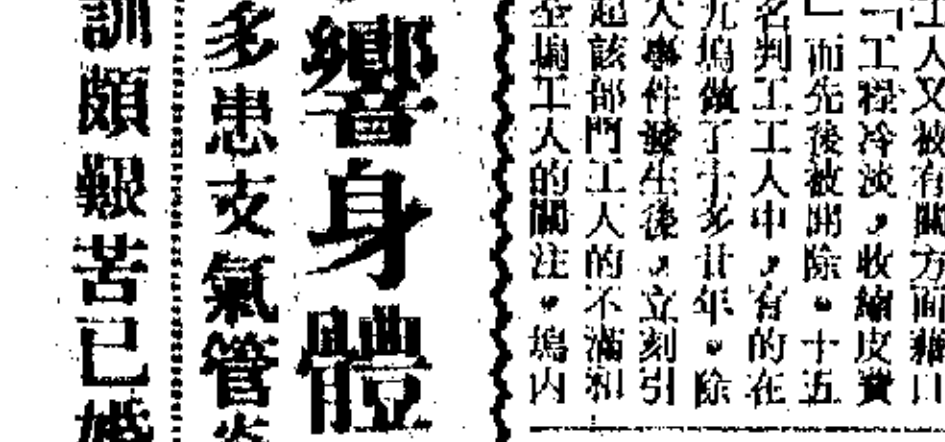 工人又被有關方面藉口
「工程冷淡，收縮皮費
」而先後被開除。十五
名判工工人中，有的在
九塢做了十多廿年。除
大事件發生後，立刻引
起該部門工人的不滿和
全塢工人的關注。塢内
響身體
多患支氣管炎
訓頗艱苦已婚